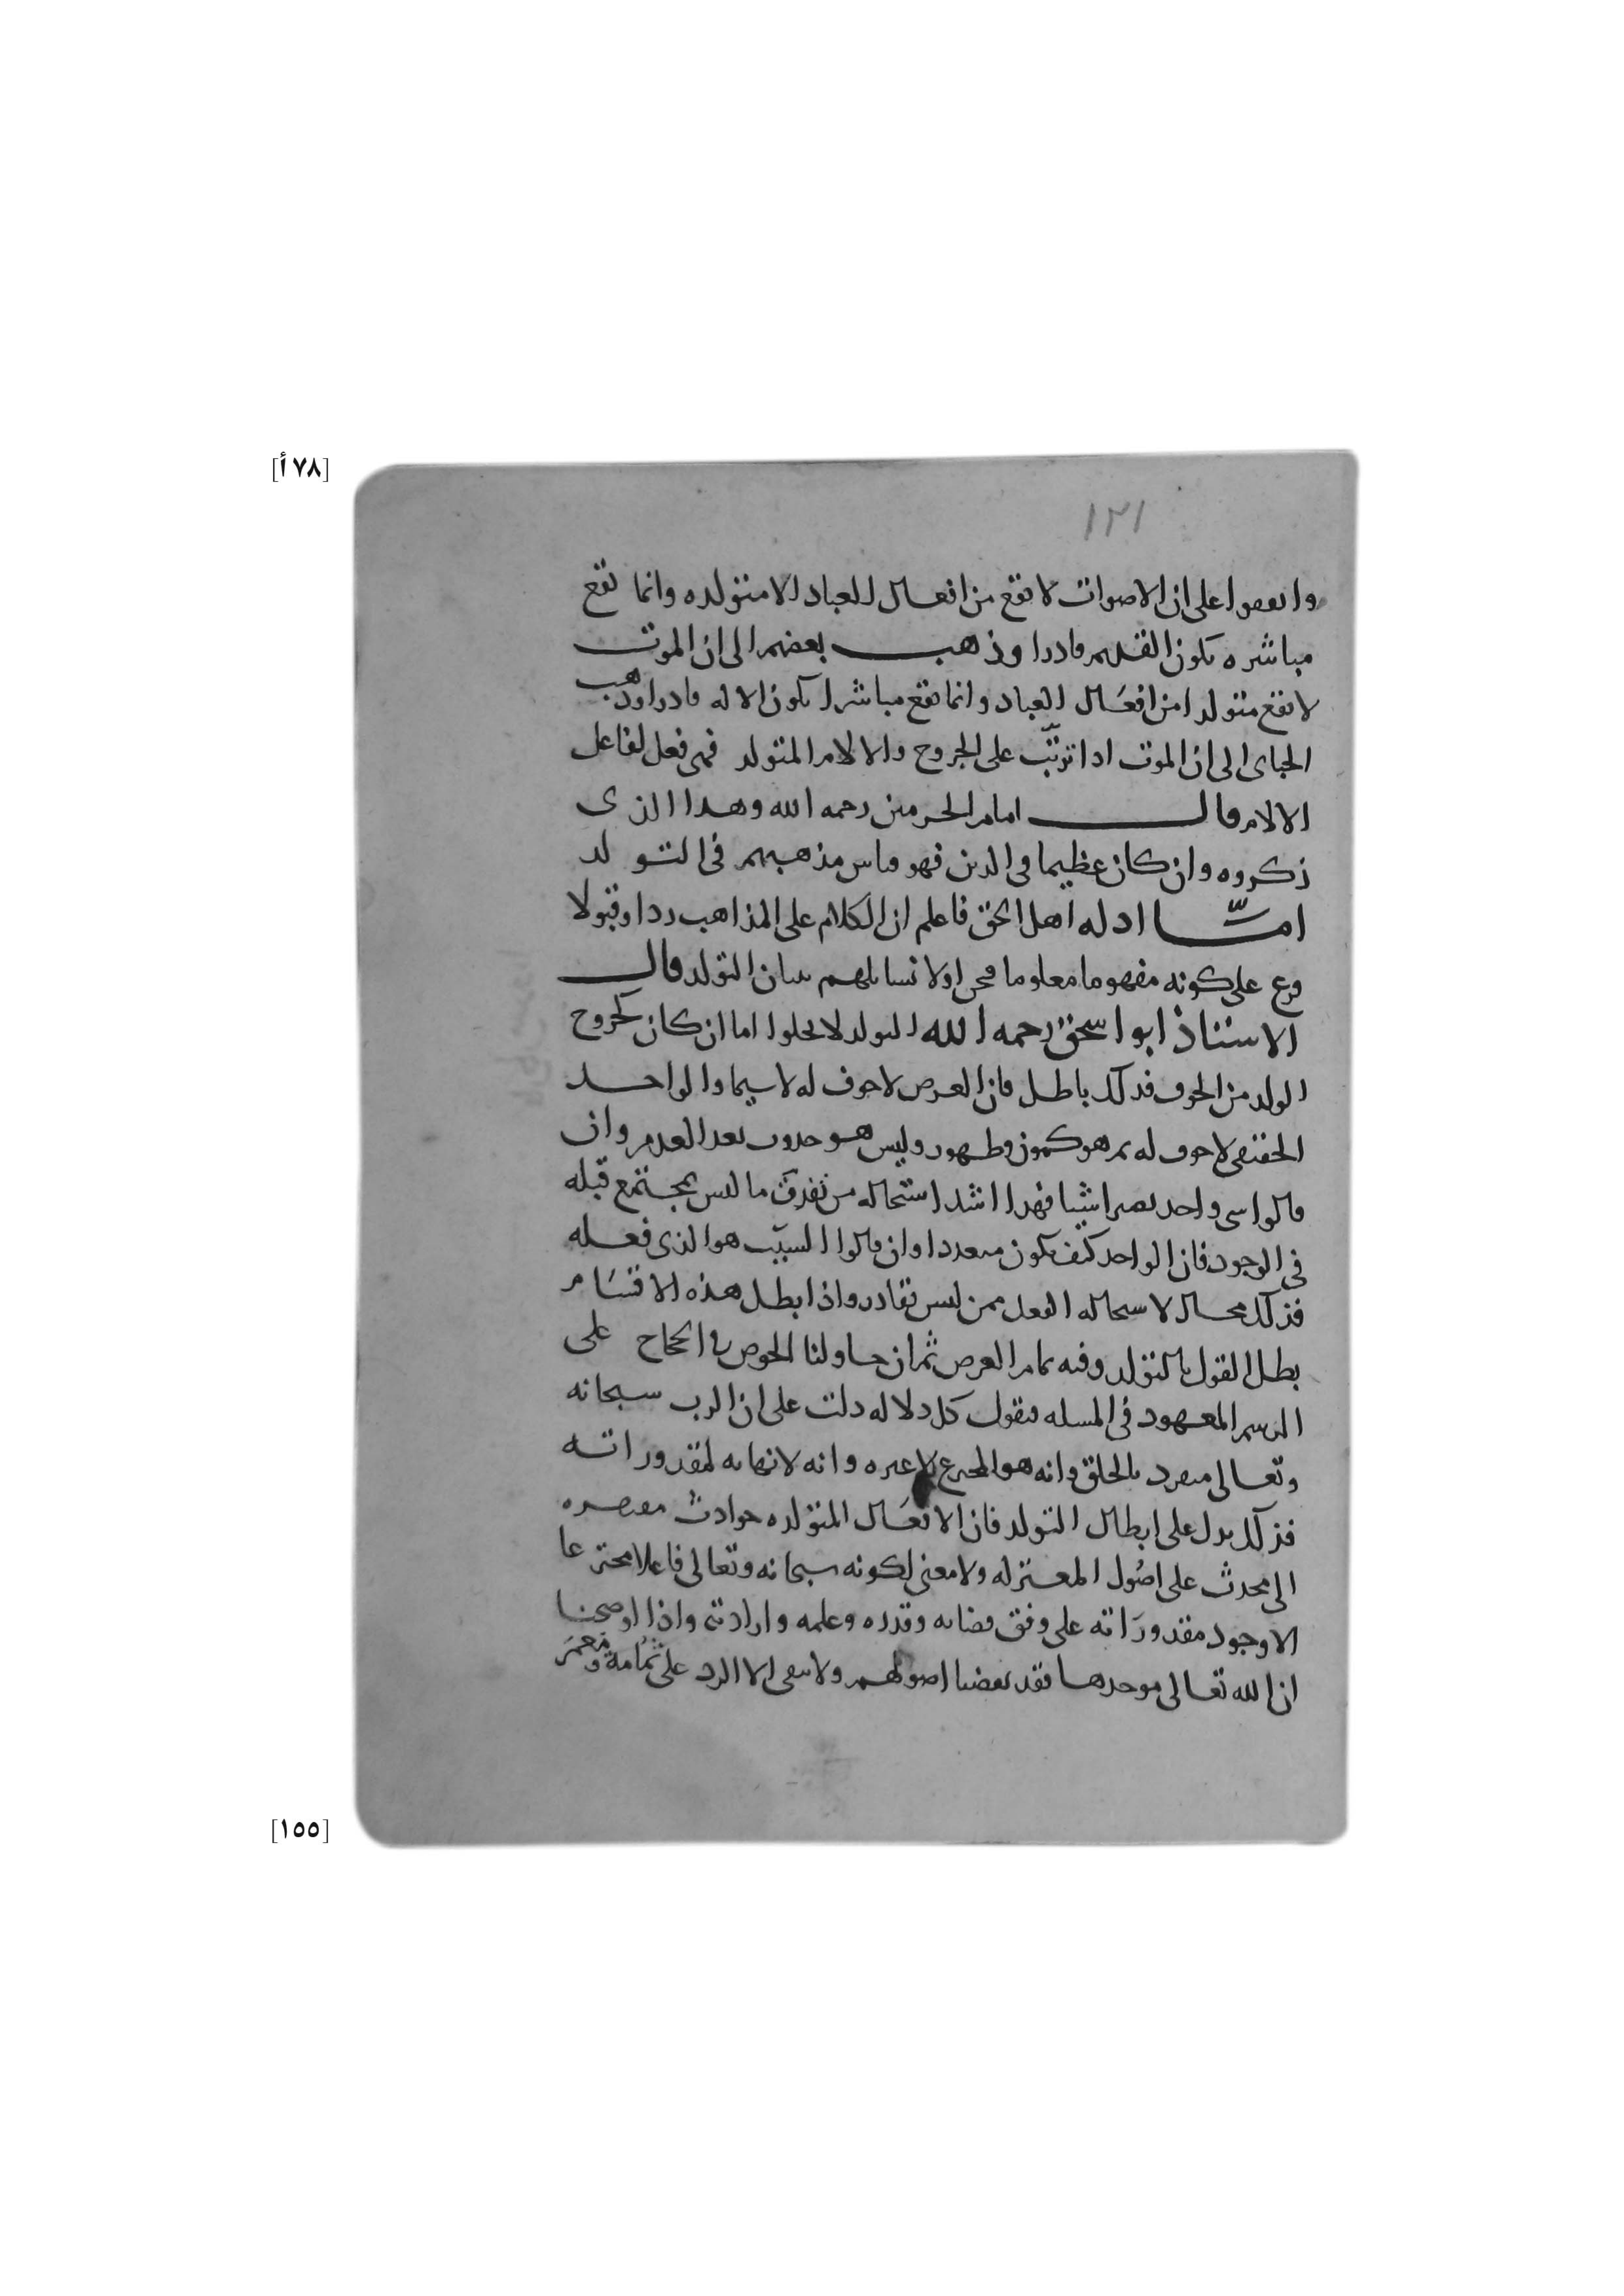 [٧٨أ]
١٢١
واتفقوا على ان الاصوات لا تقع من افعال العباد الا متولده وانما تقع
مباشره بكون القديم قادرا وذهب بعضهم الى ان الموت
لا تقع متولدا من افعال العباد وانما تقع مباشرا بكون الاله قادرا وذهب
الجباى الى ان الموت اذا ترتب على الجروح والالام المتولد فهى فعل لفاعل
الالام قال امام الحرمين رحمه الله وهذا الذى
ذكروه وان كان عظيما فى الدين فهو قياس مذهبهم فى التولد
امّا ادله اهل الحق فاعلم ان الكلام على المذاهب ردا وقبولا
فرع على كونه مفهوما معلوما فنحن اولا نسايلهم بيان التولد قال
الاستاذ ابو اسحق رحمه الله التولد لا يخلوا اما ان كان كخروج
الولد من الجوف فذلك باطل فان العرض لا جوف له لا سيما والواحد
الحقيقى لا جوف له ثم هو كمون وظهور وليس هو حدوث بعد العدم وان
قالوا شى واحد يصير اشيا فهذا اشد استحاله من تفرق ما ليس بمجتمع قبله
فى الوجود فان الواحد كيف يكون متعددا وان قالوا السبب هو الذى فعله
فذلك محال لاستحاله الفعل ممن ليس بقادر واذا بطل هذه الاقسام
بطل القول بالتولد وفيه تمام الغرض ثم ان حاولنا الخوض فى الحجاج على
الرسم المعهود فى المسله فنقول كل دلاله دلت على ان الرب سبحانه
وتعالى متفرد بالخلق وانه هو المخترع لا غيره وانه لا نهايه لمقدوراته
فذلك يدل على ابطال التولد فان الافعال المتولده حوادث مفتقره
الى محدث على اصول المعتزله ولا معنى لكونه سبحانه وتعالى فاعلا مخترعا
الا وجود مقدوراته على وفق قضايه وقدره وعلمه وارادته واذا اوضحنا
ان الله تعالى موجدها فقد نقضنا اصولهم ولا يبقى الا الرد على ثمامه ومعمر
[١٥٥]